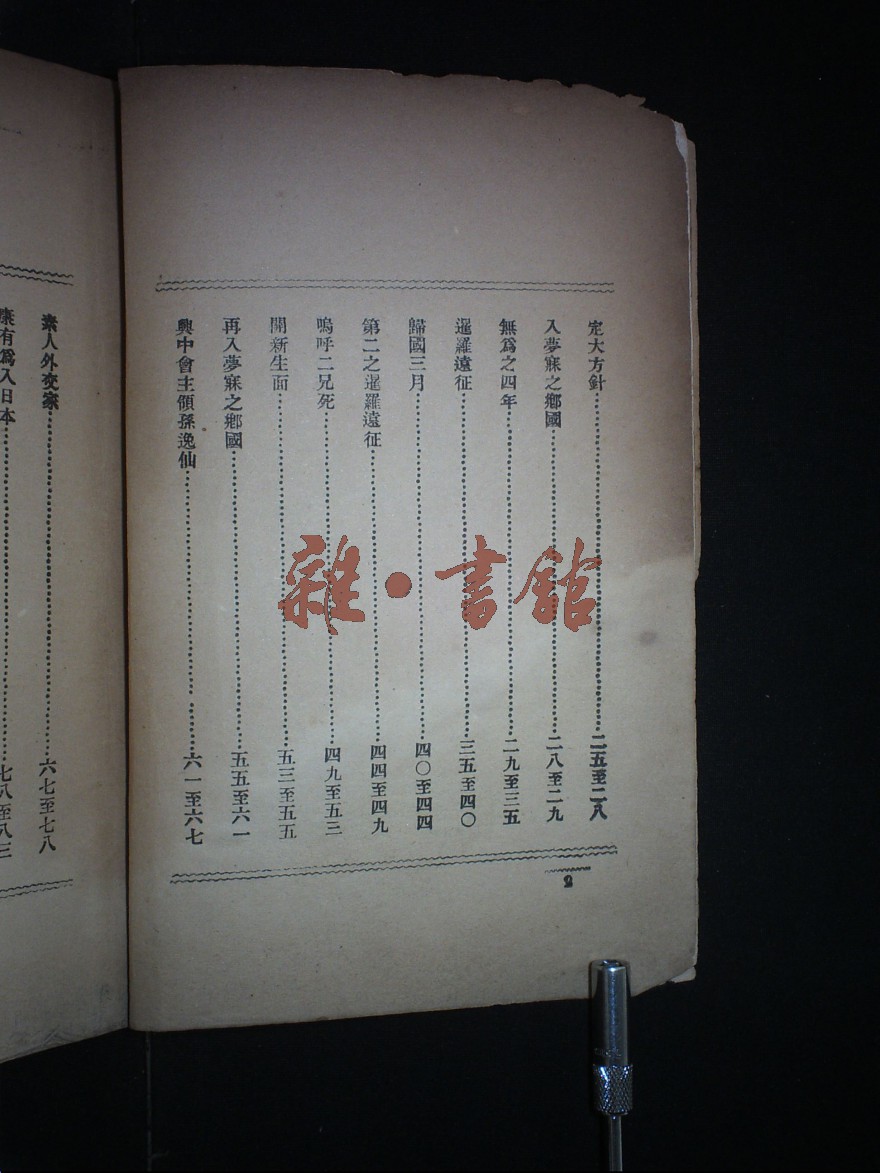 定大方針 二五至二八
入夢寐之鄉國 二八至二九
無爲之四年 二九至三五
暹羅遠征 三五至四〇
歸國三月 四〇至四四
第二之暹羅遠征 四四至四九
嗚呼二兄死 四九至五三
開新生面 五三至五五
再入夢寐之鄉國 五五至六一
興中會主領孫逸仙 六一至六七
2
素人外交家 六七至七八
康有爲入日本 七八至八三
雜·書館